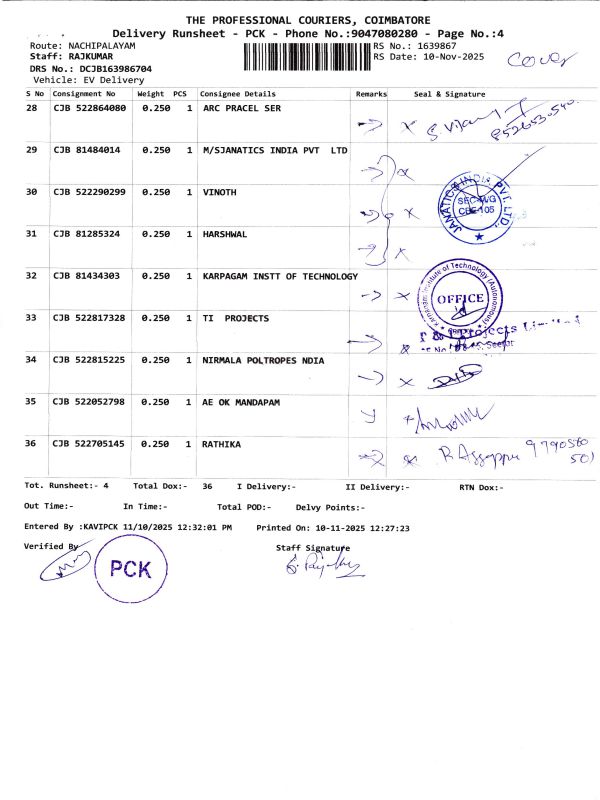 THE PROFESSIONAL COURIERS, COIMBATORE
Delivery Runsheet - PCK - Phone No.:9047080280 - Page No.:4
Route: NACHIPALAYAM RS No.: 1639867
Staff: RAJKUMAR RS Date: 10-Nov-2025 Cover
DRS No.: DCJB163986704
Vehicle: EV Delivery
S No Consignment No Weight PCS Consignee Details Remarks Seal & Signature
28 CJB 522864080 0.250 1 ARC PRACEL SER
29 CJB 81484014 0.250 1 M/SJANATICS INDIA PVT LTD
30 CJB 522290299 0.250 1 VINOTH
JANATICS INDIA PVT. LTD.
31 CJB 81285324 0.250 1 HARSHWAL
32 CJB 81434303 0.250 1 KARPAGAM INSTT OF TECHNOLOGY
Karpagam Institute of Technology (Autonomous)
OFFICE
33 CJB 522817328 0.250 1 TI PROJECTS
Projects Limited
34 CJB 522815225 0.250 1 NIRMALA POLTROPES NDIA
35 CJB 522052798 0.250 1 AE OK MANDAPAM
36 CJB 522705145 0.250 1 RATHIKA
Tot. Runsheet:- 4 Total Dox:- 36 I Delivery:- II Delivery:- RTN Dox:-
Out Time:- In Time:- Total POD:- Delvy Points:-
Entered By :KAVIPCK 11/10/2025 12:32:01 PM Printed On: 10-11-2025 12:27:23
Verified By Staff Signature
PCK